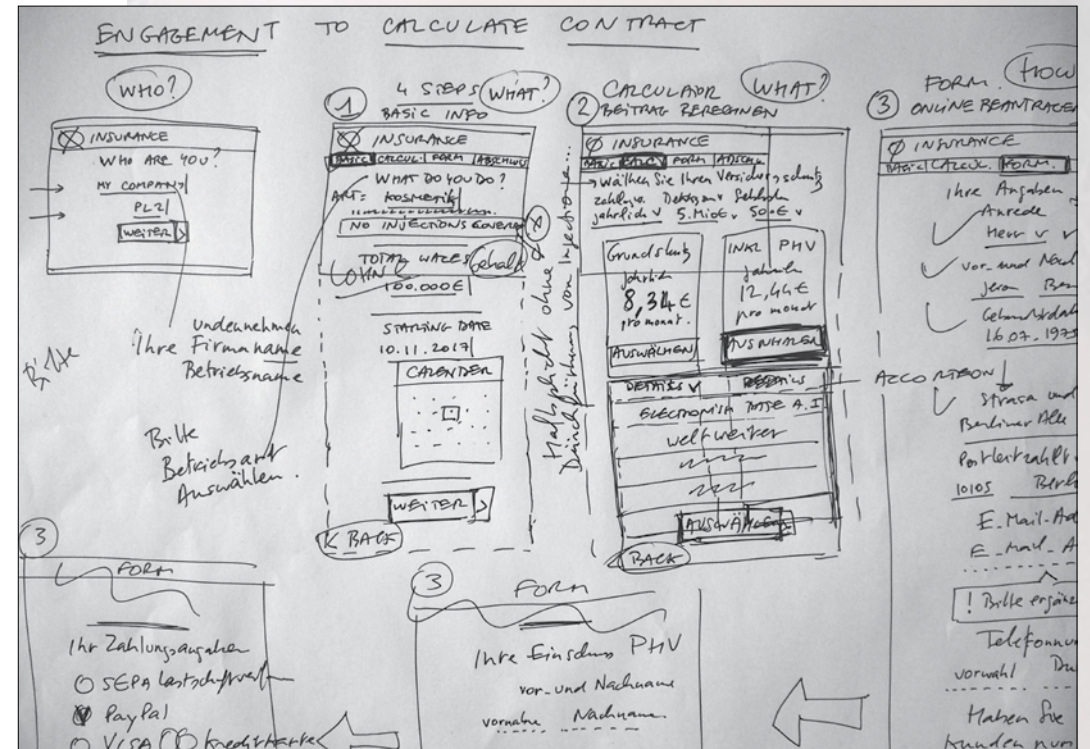 ENGAGEMENT TO CALCULATE CONTRACT
WHO?
INSURANCE
WHO ARE YOU?
MY COMPANY
PLZ
WEITER >
Undernehmen
Ihre Firmaname
Betriebsname
Bitte
Bitte
Betriebsart
Auswählen.
1
4 STEPS WHAT?
BASIC INFO
INSURANCE
BASIC CALCUL. FORM ABSCHLUSS
WHAT DO YOU DO?
ART= KOSMETIK
NO INJECTIONS COVERED
TOTAL WAGES Gehalt
LOHN
100.000€
STARTING DATE
10.11.2017
CALENDER
WEITER >
< BACK
Haftpflicht ohne
Durchführung von Injectione...
2
CALCULATOR WHAT?
BEITRAG BERECHNEN
INSURANCE
BASIC CALCU FORM
Wählen Sie Ihren Versicherungsschutz
jährlich v 5.Mio€ v 50.€ v
Grundschutz
jährlich
8,34€
pro monat.
AUSWÄHLEN
INKL PHV
12,44€
pro monat
DETAILS v
weltweiter
AUSWÄHLEN
BACK
FORM. HOW
3
ONLINE BEANTRAGEN
INSURANCE
BASIC CALCUL. FORM.
Ihre Angaben
Anrede
Herr v
vor- und
16.07.197
Berliner Alle
10105
E-Mail-Ad
E-Mail-A
! Bitte ergänz
vorwahl Du
Haben Sie
Kunden num
3
FORM
Ihr Zahlungsangaben
SEPA
PayPal
VISA Kreditkarte
3
FORM
Ihre PHV
vor- und Nachname
Nachname.